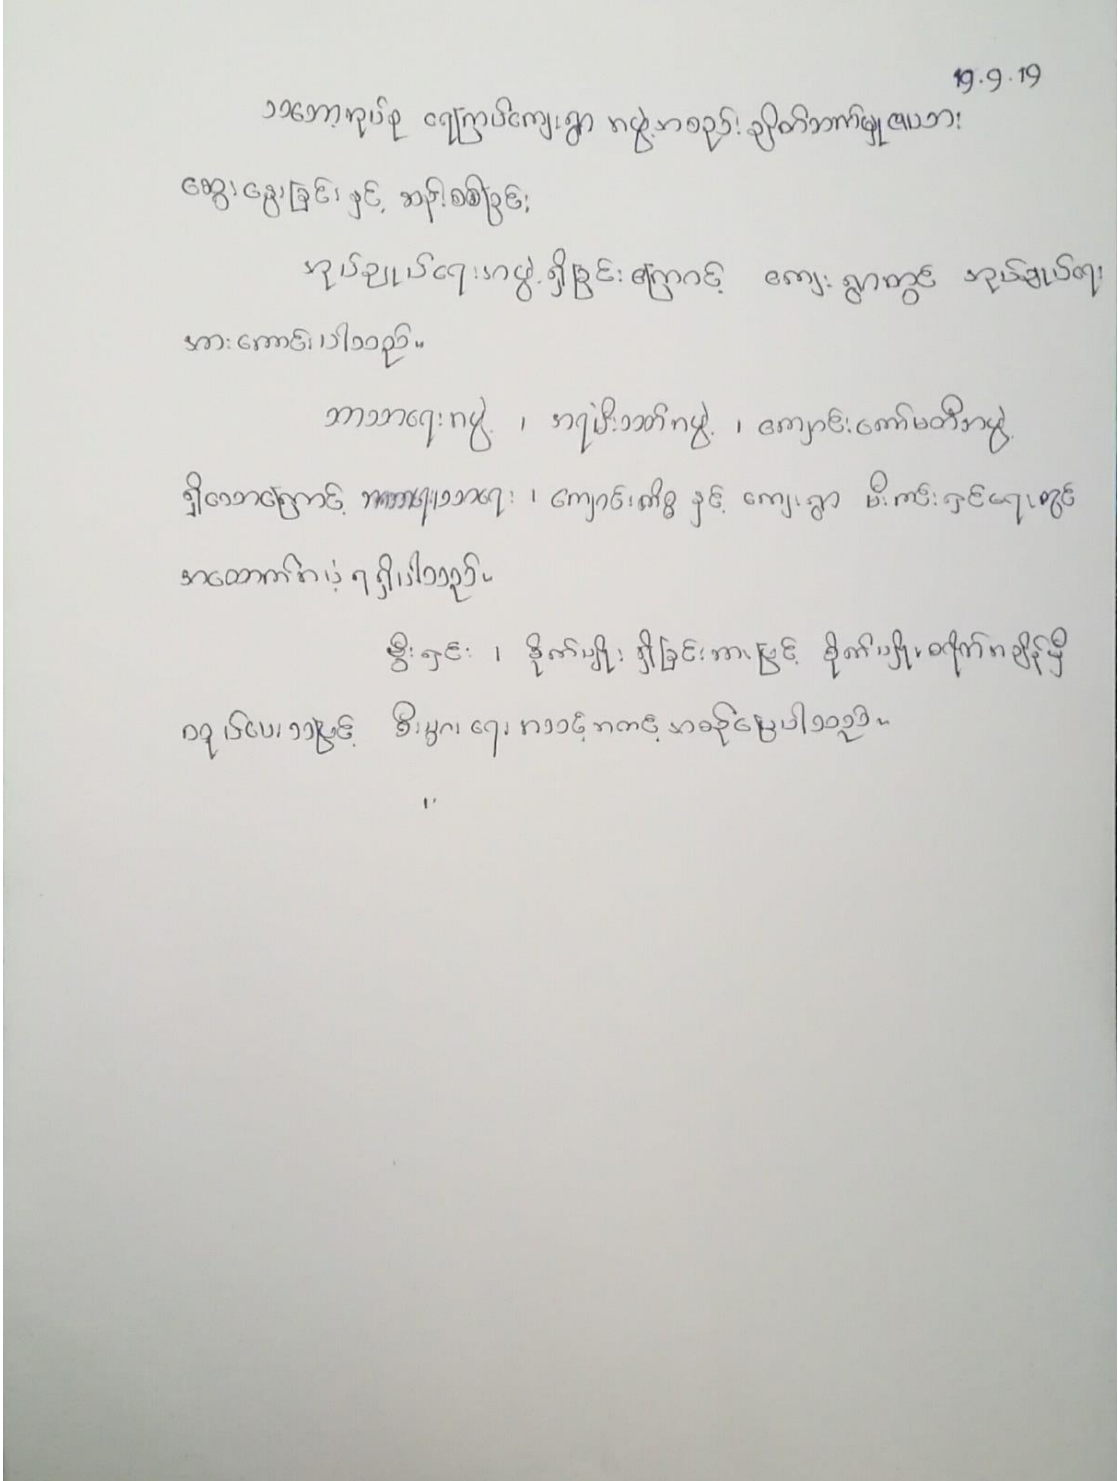 19.9.19
သဘော့အုပ်စု ရေကြာပ်ကျေးရွာ အဖွဲ့အစည်း ချိတ်ဆက်မှုဗပသား
ဆွေးနွေးခြင်းနှင့် ဆန်းစစ်ခြင်း
အုပ်ချုပ်ရေးအဖွဲ့ ရှိခြင်းကြောင့် ကျေးရွာတွင် အုပ်ချုပ်ရေး
အားကောင်းပါသည်။
ဘာသာရေးအဖွဲ့ ၊ အရံမီးသတ်အဖွဲ့ ၊ ကျောင်းကော်မတီအဖွဲ့
ရှိသောကြောင့် ဘာသာရေး ၊ ကျောင်းကိစ္စ နှင့် ကျေးရွာ မီးကင်းရှင်းရေးတွင်
အထောက်အပံ့ ရရှိပါသည်။
မွီးရှင်း ၊ စိုက်ပျိုး ရှိခြင်းအားဖြင့် စိုက်ပျိုးစရိုက်အချိန်မှီ
ထုပ်ပေးသဖြင့် စီးပွားရေး အသင့်အတင့် အစဉ်ပြေပါသည်။